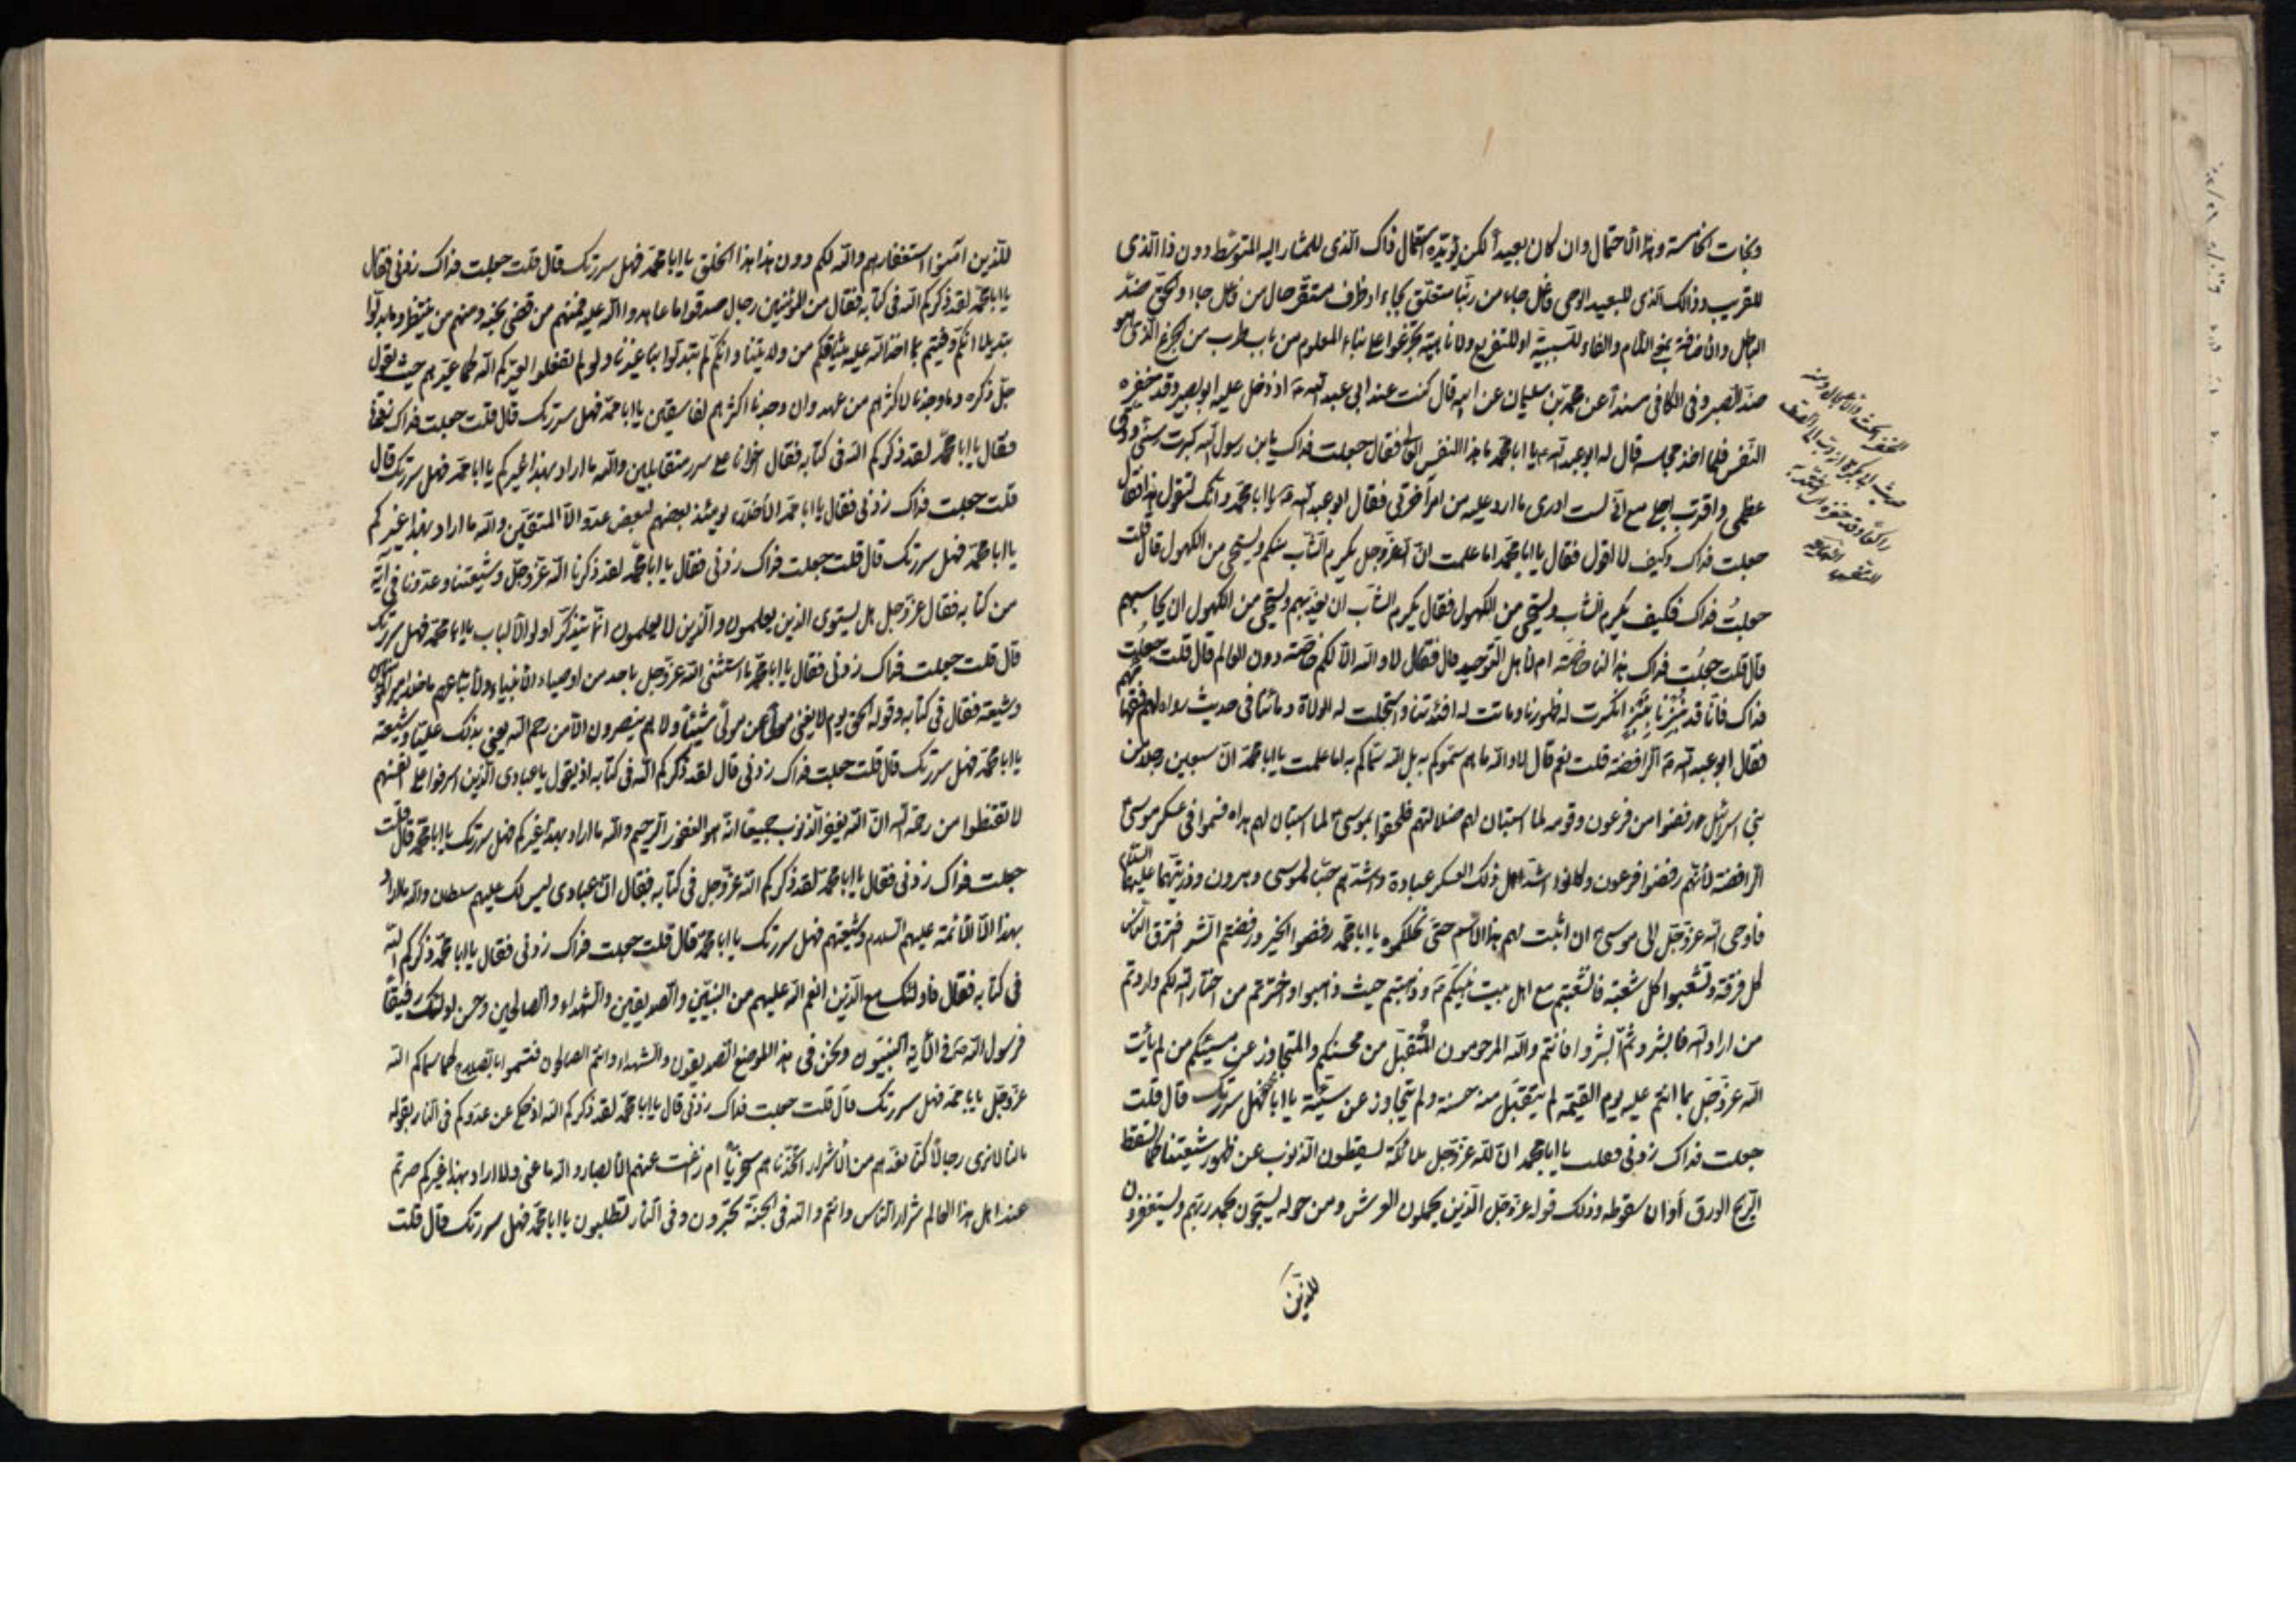 وهذا الاحتمال وان كان بعيداً لكن يؤيده استعمال ذاك الذى للمشار اليه المتوسط دون ذا الذى
للقريب وذلك الذى للبعيد الوحى فاعل جاء من ربنا متعلق بجاء او ظرف مستقر حال من فاعل جاء والحق ضدّ
الباطل والاضافة بمعنى اللام والفاء للسببية او للتفريع ولا ناهية تجزعوا على بناء المعلوم من باب طرب من الجزع الذى هو
ضدّ الصبر وفى الكافى مسنداً عن محمد بن سليمان عن ابيه قال كنت عند ابى عبد الله ع اذ دخل عليه ابو بصير وقد حفزه
النفس فلما اخذ مجلسه قال له ابو عبد الله ع يا ابا محمد ما هذا النفس العالى فقال جعلت فداك يا بن رسول الله كبرت سنّى ودقّ
عظمى واقترب اجلى مع انّى لست ادرى ما ارد عليه من امر آخرتى فقال ابو عبد الله ع يا ابا محمد وانّك لتقول هذا فقال
جعلت فداك وكيف لا اقول فقال يا ابا محمد اما علمت انّ الله عزّ وجل يكرم الشّاب منكم ويستحيى من الكهول قال قلت
جعلتُ فداك فكيف يكرم الشّاب ويستحيى من الكهول فقال يكرم الشّاب ان يعذّبهم ويستحيى من الكهول ان يحاسبهم
قال قلت جعلتُ فداك هذا لنا خاصّة ام لاهل التوحيد قال فقال لا والله الّا لكم خاصّة دون العالم قال قلت جعلت
فداك فانّا قد نُبِزْنا بنَبْزٍ انكسرت له ظهورنا وماتت له افئدتنا واستحلّت له الولاة دمائنا فى حديث رواه لهم فقهائهم
فقال ابو عبد الله ع الرافضة قلت نعم قال لا والله ما هم سمّوكم به بل الله سمّاكم به اما علمت يا ابا محمد انّ سبعين رجلا من
بنى اسرائيل رفضوا من فرعون وقومه لما استبان لهم ضلالتهم فلحقوا بموسى لما استبان لهم هداه فسموا فى عسكر موسى
الرافضة لأنّهم رفضوا فرعون وكانوا اشدّ اهل ذلك العسكر عبادة واشدّهم حبّا لموسى وهرون وذريّتهما عليهما السلام
فاوحى الله عزّ وجلّ الى موسى ان اثبت لهم هذا الاسم حتى نحلتكموه يا ابا محمد رفضوا الخير ورفضتم الشر افترق الناس
كل فرقة وتشعّبوا كل شعبة فانشعبتم مع اهل بيت نبيّكم ع وذهبتم حيث ذهبوا واخترتم من اختار الله لكم واردتم
من اراد الله فابشروا ثمّ ابشروا فانتم والله المرحومون المُتَقَبَّل من محسنكم والمتجاوز عن مسيئكم من لم يأت
الله عزّ وجلّ بما انتم عليه يوم القيمة لم يتقبّل منه حسنة ولم يتجاوز عن سيّئة يا ابا محمد فهل سررتك قال قلت
جعلت فداك زدنى فقال يا ابا محمد انّ لله عزّ وجل ملائكة يسقطون الذنوب عن ظهور شيعتنا كما تسقط
الريح الورق أوان سقوطه وذلك قوله عزّ وجلّ الذين يحملون العرش ومن حوله يسبّحون بحمد ربّهم ويستغفرون
للذين
للذين آمنوا استغفارهم والله لكم دون هذا الخلق يا ابا محمد فهل سررتك قال قلت جعلت فداك زدنى فقال
يا ابا محمد لقد ذكركم الله فى كتابه فقال من المؤمنين رجال صدقوا ما عاهدوا الله عليه فمنهم من قضى نحبه ومنهم من ينتظر وما بدّلوا
تبديلا انّكم وفيتم بما اخذ الله عليه ميثاقكم من ولايتنا وانّكم لم تبدّلوا بنا غيرنا ولو لم تفعلوا لعيّركم الله كما عيّرهم حيث يقول
جلّ ذكره وما وجدنا لاكثرهم من عهد وان وجدنا اكثرهم لفاسقين يا ابا محمد فهل سررتك قال قلت جعلت فداك زدنى
فقال يا ابا محمد لقد ذكركم الله فى كتابه فقال اخوانا على سرر متقابلين والله ما اراد بهذا غيركم يا ابا محمد فهل سررتك قال
قلت جعلت فداك زدنى فقال يا ابا محمد الأخلّاء يومئذ بعضهم لبعض عدوّ الّا المتّقين والله ما اراد بهذا غيركم
يا ابا محمد فهل سررتك قال قلت جعلت فداك زدنى فقال يا ابا محمد لقد ذكرنا الله عزّ وجلّ وشيعتنا وعدوّنا فى آية
من كتابه فقال عزّ وجل هل يستوى الذين يعلمون والذين لا يعلمون انّما يتذكّر اولو الالباب يا ابا محمد فهل سررتك
قال قلت جعلت فداك زدنى فقال يا ابا محمد ما استثنى الله عزّ وجل باحد من اوصياء الانبياء ولا اتباعهم ما خلا امير المؤمنين
وشيعته فقال فى كتابه وقوله الحق يوم لا يغنى مولى عن مولى شيئاً ولا هم ينصرون الّا من رحم الله يعنى بذلك عليّا وشيعته
يا ابا محمد فهل سررتك قال قلت جعلت فداك زدنى قال لقد ذكركم الله فى كتابه اذ يقول يا عبادى الذين اسرفوا على انفسهم
لا تقنطوا من رحمة الله انّ الله يغفر الذنوب جميعا انّه هو الغفور الرحيم والله ما اراد بهذا غيركم فهل سررتك يا ابا محمد قال قلت
جعلت فداك زدنى فقال يا ابا محمد لقد ذكركم الله عزّ وجل فى كتابه فقال انّ عبادى ليس لك عليهم سلطان والله ما اراد
بهذا الّا الأئمّة عليهم السلام وشيعتهم فهل سررتك يا ابا محمد قال قلت جعلت فداك زدنى فقال يا ابا محمد ذكركم الله
فى كتابه فقال فاولئك مع الذين انعم الله عليهم من النبيّين والصديقين والشهداء والصالحين وحسن اولئك رفيقاً
فرسول الله ص فى الآية النبيّون ونحن فى هذا الموضع الصديقون والشهداء وانتم الصالحون فتسموا بالصلاح كما سماكم الله
عزّ وجلّ يا ابا محمد فهل سررتك قال قلت جعلت فداك زدنى قال يا ابا محمد لقد ذكركم الله اذ حكى عن عدوّكم فى النار بقوله
ما لنا لا نرى رجالاً كنّا نعدّهم من الأشرار اتّخذناهم سخريّاً ام زاغت عنهم الأبصار والله ما عنى ولا اراد بهذا غيركم صرتم
عند اهل هذا العالم شرار الناس وانتم والله فى الجنة تحبرون وفى النار تطلبون يا ابا محمد فهل سررتك قال قلت